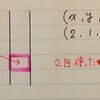 (x, y,
(2, 1,
2回使った